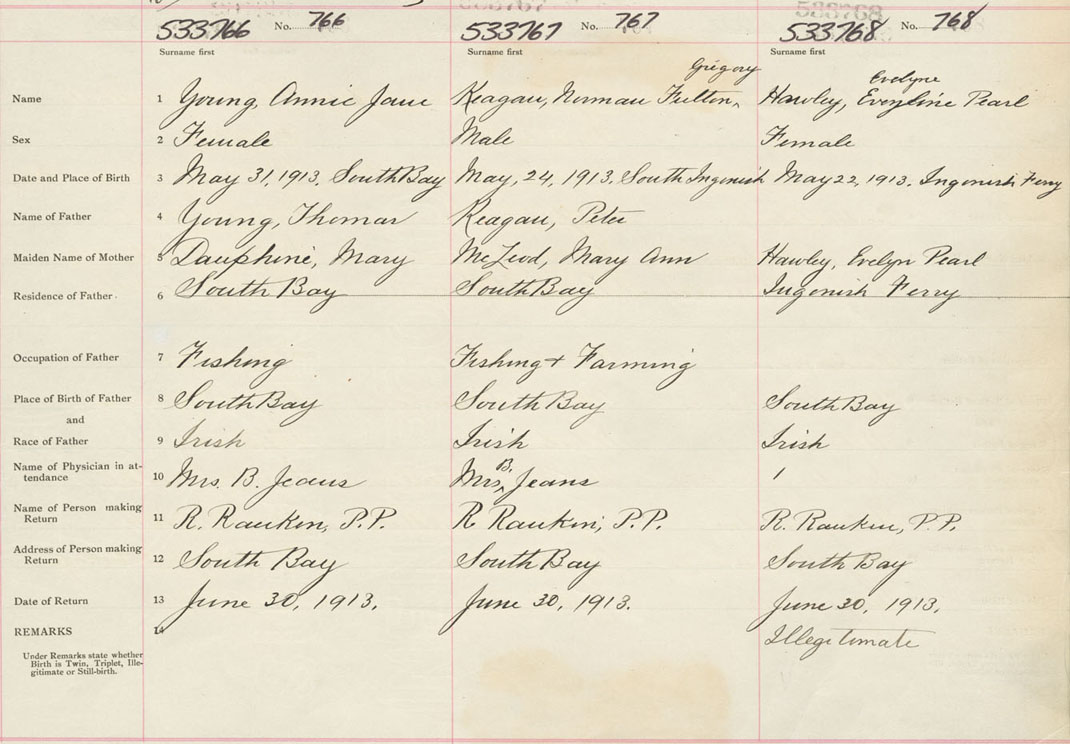 533766 No. 766 533767 No. 767 533768 No. 768
Surname first Surname first Surname first
Gregory Evelyne
Name 1 Young, Annie Jane Reagan, Norman Fulton, Hawley, Evryline Pearl
Sex 2 Female Male Female
Date and Place of Birth 3 May 31, 1913. South Bay May, 24, 1913. South Ingonish May 22, 1913. Ingonish Ferry
Name of Father 4 Young, Thomas Reagan, Peter
Maiden Name of Mother 5 Dauphine, Mary McLeod, Mary Ann Hawley, Evelyn Pearl
Residence of Father 6 South Bay South Bay Ingonish Ferry
Occupation of Father 7 Fishing Fishing + Farming
Place of Birth of Father 8 South Bay South Bay South Bay
and
Race of Father 9 Irish Irish Irish
Name of Physician in at-
tendance 10 Mrs. B. Jeans Mrs. B. Jeans /
Name of Person making
Return 11 R. Rankin, P.P. R Rankin, P.P. R. Rankin, P.P.
Address of Person making
Return 12 South Bay South Bay South Bay
Date of Return 13 June 30, 1913. June 30, 1913. June 30, 1913.
REMARKS 14 Illegitimate
Under Remarks state whether
Birth is Twin, Triplet, Ille-
gitimate or Still-birth.